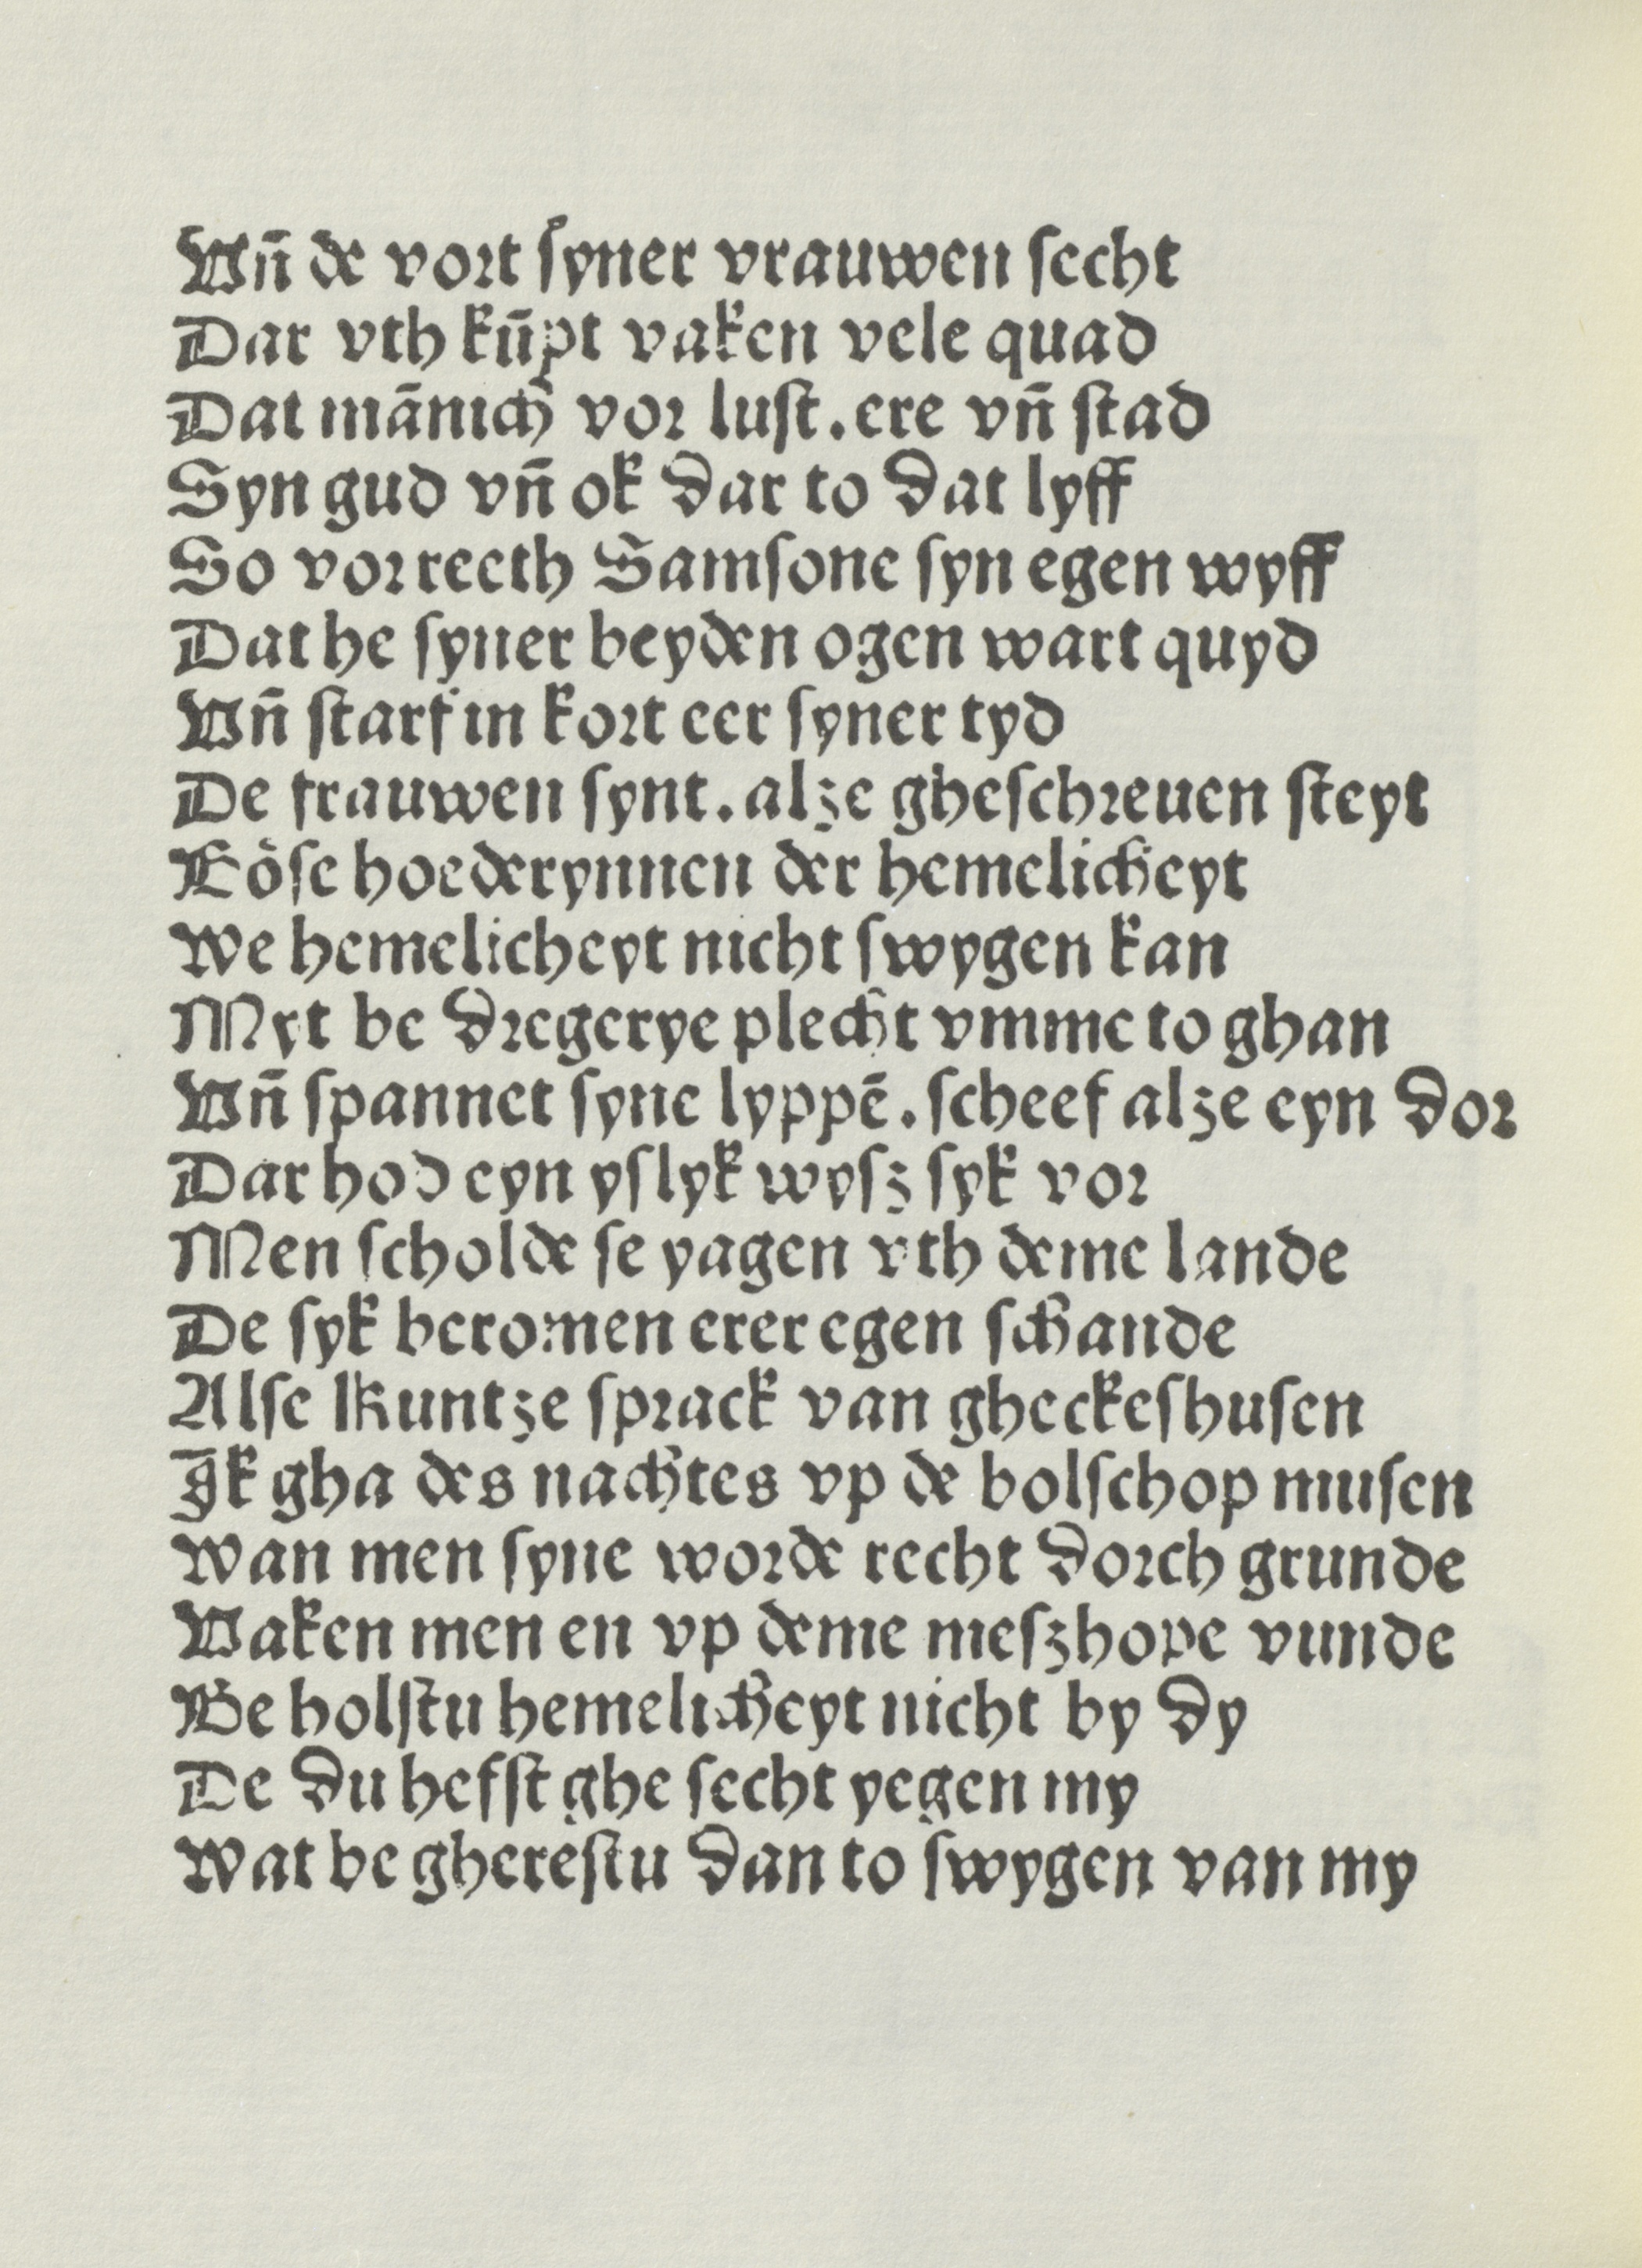 Vn̄ de vort ſyner vrauwen ſecht
Dar vth kūpt vaken vele quad
Dat mānich vor luſt. ere vn̄ ſtad
Syn gud vn̄ ok dar to dat lyff
So vorreeth Samſone ſyn egen wyff
Dat he ſyner beyden ogen wart quyd
Vn̄ ſtarf in kort eer ſyner tyd
De frauwen ſynt. alze gheſchreuen ſteyt
Löſe hoederynnen der hemelicheyt
We hemelicheyt nicht ſwygen kan
Myt be dregerye plecht vmme to ghan
Vn̄ ſpannet ſyne lyppē. ſcheef alze eyn dor
Dar hod eyn yſlyk wyſz ſyk vor
Men ſcholde ſe yagen vth deme lande
De ſyk beromen erer egen ſchande
Alſe Kuntze ſprack van gheckeſhuſen
Ik gha des nachtes vp de bolſchop muſen
Wan men ſyne worde recht dorch grunde
Vaken men en vp deme meſzhope vunde
Be holſtu hemelicheyt nicht by dy
De du hefſt ghe ſecht yegen my
Wat be ghereſtu dan to ſwygen van my